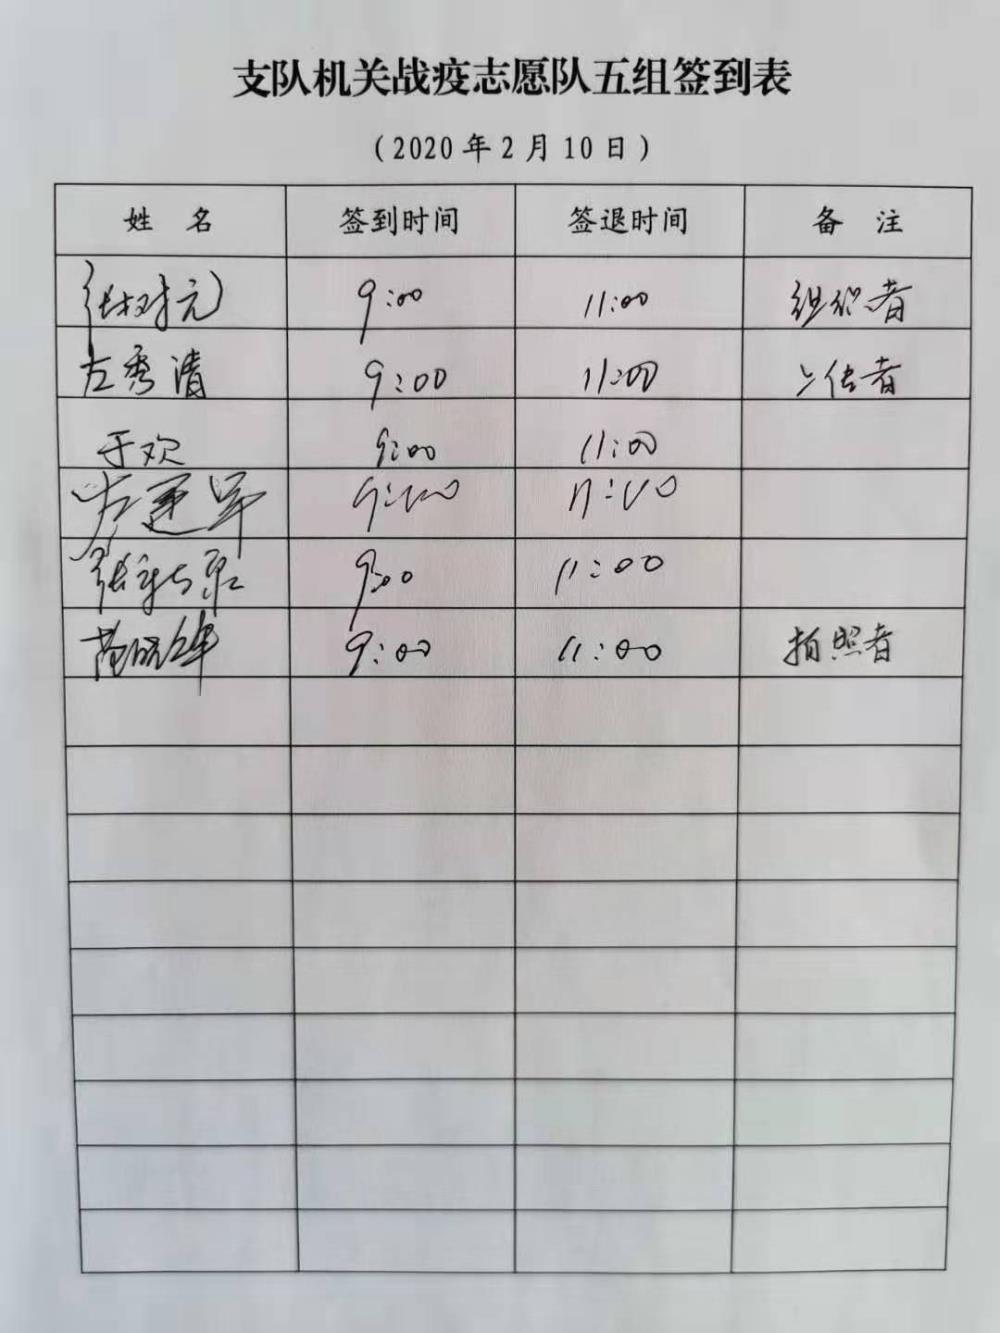 支队机关战疫志愿队五组签到表
(2020年2月10日)
姓 名 签到时间 签退时间 备 注
张树元 9:00 11:00 组织者
左秀清 9:00 11:00 上传者
于欢 9:00 11:00
左运军 9:00 11:00
张 9:00 11:00
9:00 11:00 拍照者